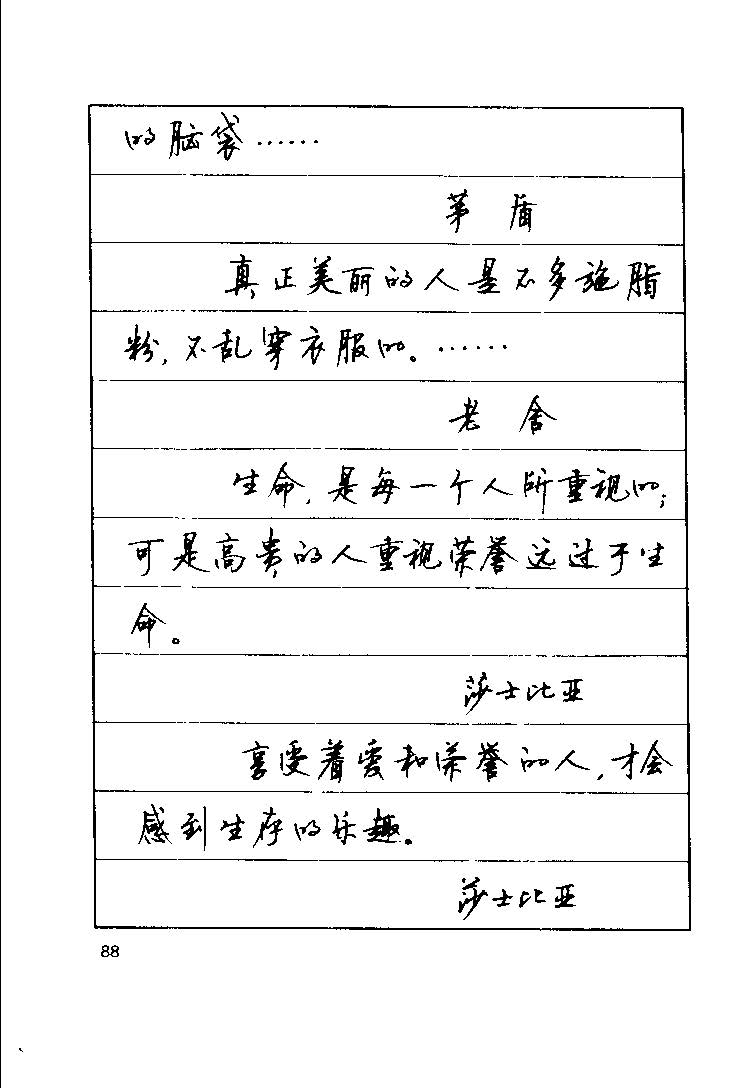 的脑袋……
茅 盾
真正美丽的人是不多施脂
粉，不乱穿衣服的。……
老 舍
生命，是每一个人所重视的；
可是高贵的人重视荣誉远过于生
命。
莎士比亚
享受着爱和荣誉的人，才会
感到生存的乐趣。
莎士比亚
88